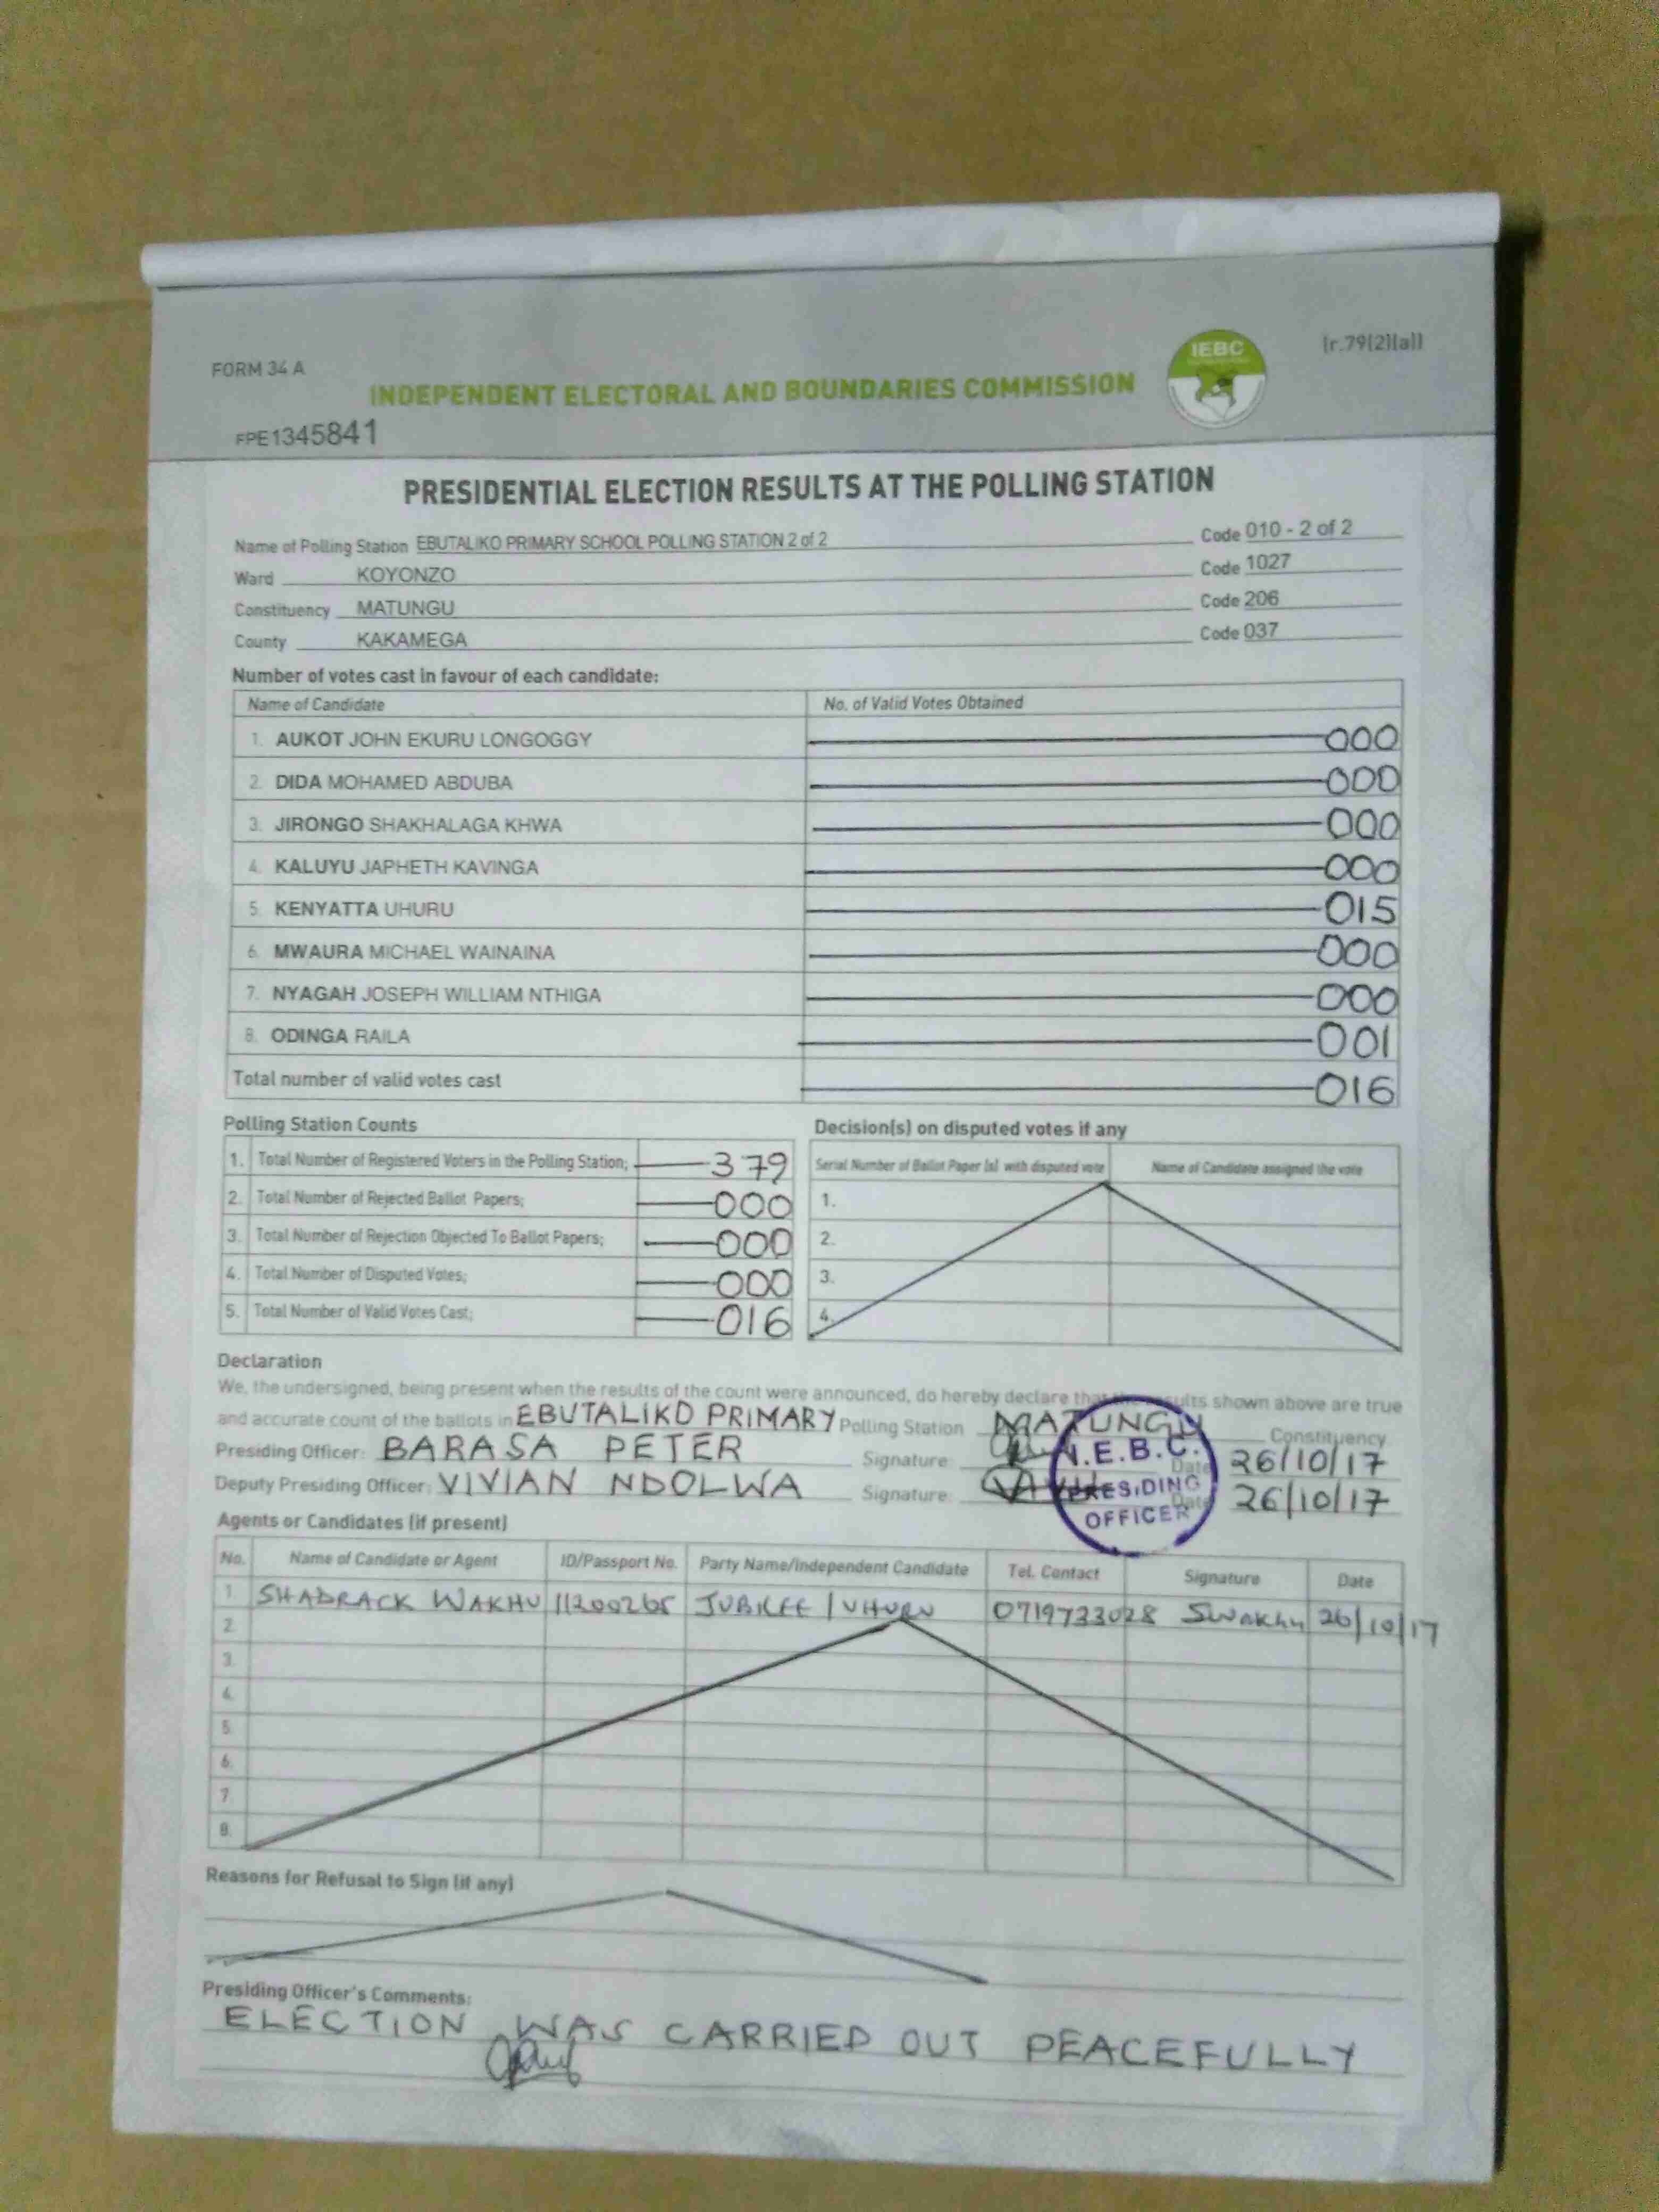 FORM 34 A
IEBC
[r.79(2)(a)]
INDEPENDENT ELECTORAL AND BOUNDARIES COMMISSION
FPE1345841
PRESIDENTIAL ELECTION RESULTS AT THE POLLING STATION
Name of Polling Station EBUTALIKO PRIMARY SCHOOL POLLING STATION 2 of 2 Code 010 - 2 of 2
Ward KOYONZO Code 1027
Constituency MATUNGU Code 206
County KAKAMEGA Code 037
Number of votes cast in favour of each candidate:
Name of Candidate No. of Valid Votes Obtained
1. AUKOT JOHN EKURU LONGOGGY 000
2. DIDA MOHAMED ABDUBA 000
3. JIRONGO SHAKHALAGA KHWA 000
4. KALUYU JAPHETH KAVINGA 000
5. KENYATTA UHURU 015
6. MWAURA MICHAEL WAINAINA 000
7. NYAGAH JOSEPH WILLIAM NTHIGA 000
8. ODINGA RAILA 001
Total number of valid votes cast 016
Polling Station Counts
1. Total Number of Registered Voters in the Polling Station; 379
2. Total Number of Rejected Ballot Papers; 000
3. Total Number of Rejection Objected To Ballot Papers; 000
4. Total Number of Disputed Votes; 000
5. Total Number of Valid Votes Cast; 016
Decision(s) on disputed votes if any
Serial Number of Ballot Paper (s) with disputed vote Name of Candidate assigned the vote
1.
2.
3.
4.
Declaration
We, the undersigned, being present when the results of the count were announced, do hereby declare that the results shown above are true
and accurate count of the ballots in EBUTALIKO PRIMARY Polling Station MATUNGU Constituency
Presiding Officer: BARASA PETER Signature: Date 26/10/17
Deputy Presiding Officer: VIVIAN NDOLWA Signature: Date 26/10/17
I.E.B.C.
PRESIDING
OFFICER
Agents or Candidates (if present)
No. Name of Candidate or Agent ID/Passport No. Party Name/Independent Candidate Tel. Contact Signature Date
1 SHADRACK WAKHU 11200265 JUBILEE / UHURU 0719733028 Swakhu 26/10/17
2.
3.
4.
5.
6.
7.
8.
Reasons for Refusal to Sign (if any)
Presiding Officer's Comments:
ELECTION WAS CARRIED OUT PEACEFULLY